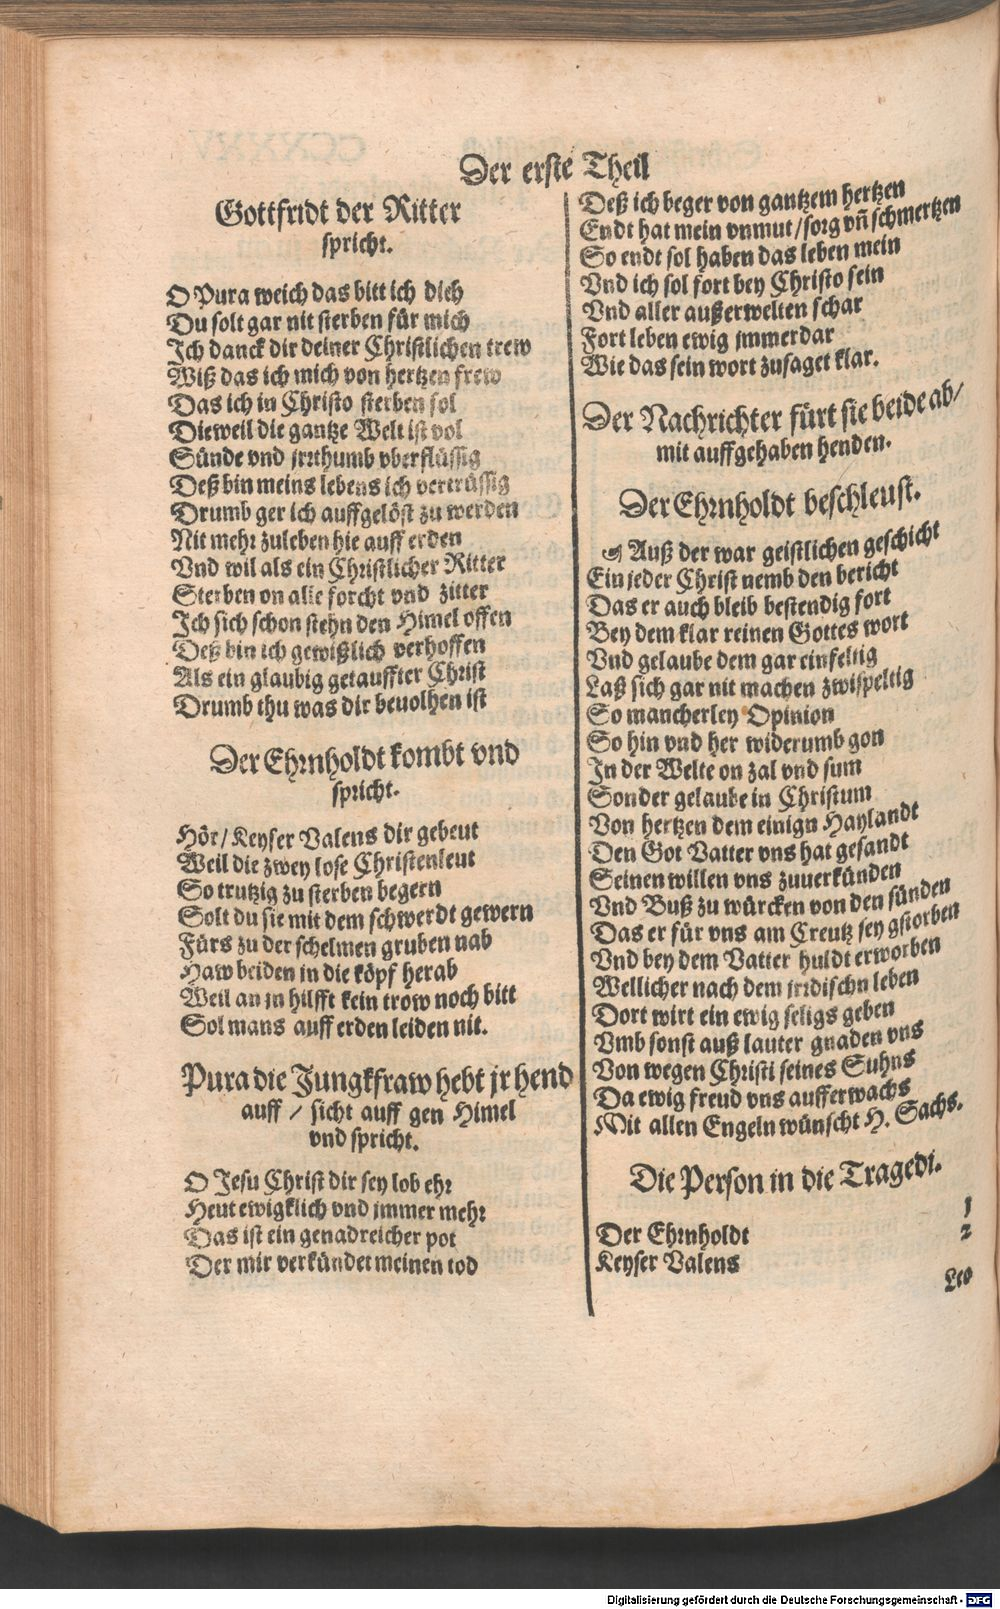 Der erste Theil
Gottfridt der Ritter
spricht.
O Pura weich das bitt ich dich
Du solt gar nit sterben für mich
Ich danck dir deiner Christlichen trew
Wiß das ich mich von hertzen frew
Das ich in Christo sterben sol
Dieweil die gantze Welt ist vol
Sünde vnd jrrthumb vberflüssig
Deß bin meins lebens ich vertrüssig
Drumb ger ich auffgelöst zu werden
Nit mehr zuleben hie auff erden
Vnd wil als ein Christlicher Ritter
Sterben on alle forcht vnd zitter
Ich sich schon stehn den Himel offen
Deß bin ich gewißlich verhoffen
Als ein glaubig getauffter Christ
Drumb thu was dir beuolhen ist
Der Ehrnholdt kombt vnd
spricht.
Hör / Keyser Valens dir gebeut
Weil die zwey lose Christenleut
So trutzig zu sterben begern
Solt du sie mit dem schwerdt gewern
Fürs zu der schelmen gruben nab
Haw beiden in die köpf herab
Weil an jn hilfft kein trow noch bitt
Sol mans auff erden leiden nit.
Pura die Jungkfraw hebt jr hend
auff / sicht auff gen Himel
vnd spricht.
O Jesu Christ dir sey lob ehr
Heut ewigklich vnd jmmer mehr
Das ist ein genadreicher pot
Der mir verkündet meinen tod
Deß ich beger von gantzem hertzen
Endt hat mein vnmut / sorg vñ schmertzen
So endt sol haben das leben mein
Vnd ich sol fort bey Christo sein
Vnd aller außerwelten schar
Fort leben ewig jmmerdar
Wie das sein wort zusaget klar.
Der Nachrichter fürt sie beide ab /
mit auffgehaben henden.
Der Ehrnholdt beschleust.
Auß der war geistlichen geschicht
Ein jeder Christ nemb den bericht
Das er auch bleib bestendig fort
Bey dem klar reinen Gottes wort
Vnd gelaube dem gar einfeltig
Laß sich gar nit machen zwispeltig
So mancherley Opinion
So hin vnd her widerumb gon
In der Welte on zal vnd sum
Sonder gelaube in Christum
Von hertzen dem einign Haylandt
Den Got Vatter vns hat gesandt
Seinen willen vns zuuerkünden
Vnd Buß zu würcken von den sünden
Das er für vns am Creutz sey gstorben
Vnd bey dem Vatter huldt erworben
Wellicher nach dem jrdischn leben
Dort wirt ein ewig seligs geben
Vmb sonst auß lauter gnaden vns
Von wegen Christi seines Suhns
Da ewig freud vns aufferwachs
Mit allen Engeln wünscht H. Sachs.
Die Person in die Tragedi.
Der Ehrnholdt 1
Keyser Valens 2
Leo
Digitalisierung gefördert durch die Deutsche Forschungsgemeinschaft - DFG